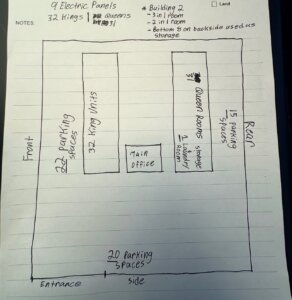 9 Electric Panels
32 Kings | Queens
31
Land
NOTES:
* Building 2
- 3 in 1 room
- 2 in 1 room
- Bottom 8 on backside used as
storage
Front
22 parking
spaces
32 King Units
Main
office
31 Queen Rooms
storage
+
1 Laundry
Room
15 parking
spaces
Rear
20 parking
spaces
Entrance
side